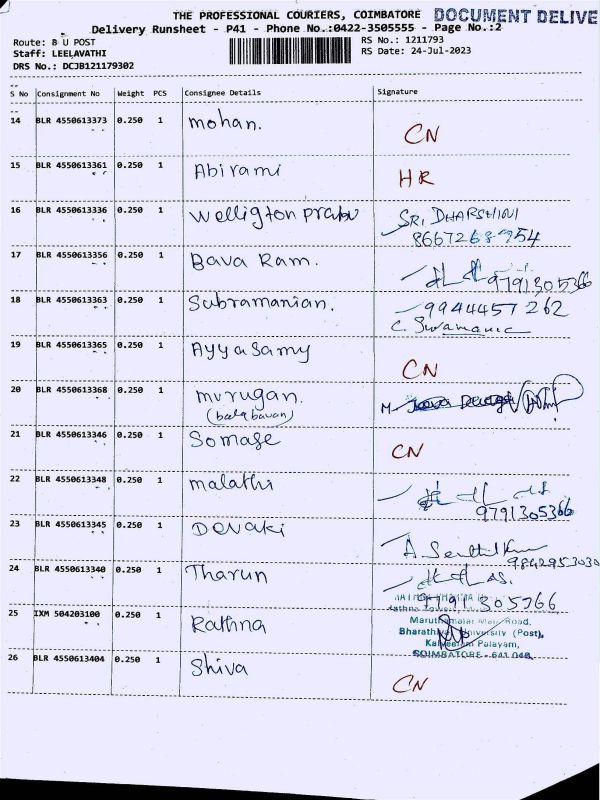 THE PROFESSIONAL COURIERS, COIMBATORE DOCUMENT DELIVE
Delivery Runsheet - P41 - Phone No.:0422-3505555 - Page No.:2
Route: 8 U POST
Staff: LEELAVATHI
DRS No.: DCJB121179302
RS No.: 1211793
RS Date: 24-Jul-2023
S No Consignment No Weight PCS Consignee Details Signature
14 BLR 4550613373 0.250 1 mohan. CN
15 BLR 4550613361 0.250 1 Abirami HR
16 BLR 4550613336 0.250 1 Welligton prabu SRI DHARSHINI
17 BLR 4550613356 0.250 1 Bava Ram. 9791305366
18 BLR 4550613363 0.250 1 Subramanian. 9944457262
19 BLR 4550613365 0.250 1 Ayyasamy CN
20 BLR 4550613368 0.250 1 murugan. M
(bala bavan)
21 BLR 4550613346 0.250 1 Somase CN
22 BLR 4550613348 0.250 1 malathi
9791305366
23 BLR 4550613345 0.250 1 Devaki A. Senthil Kumar
9842953030
24 BLR 4550613340 0.250 1 Tharun
9791305366
25 IXM 504203100 0.250 1 Rathna Maruthamalai Main Road,
Bharathiyar University (Post),
Kalveeram Palayam,
COIMBATORE - 641 046
26 BLR 4550613404 0.250 1 Shiva CN